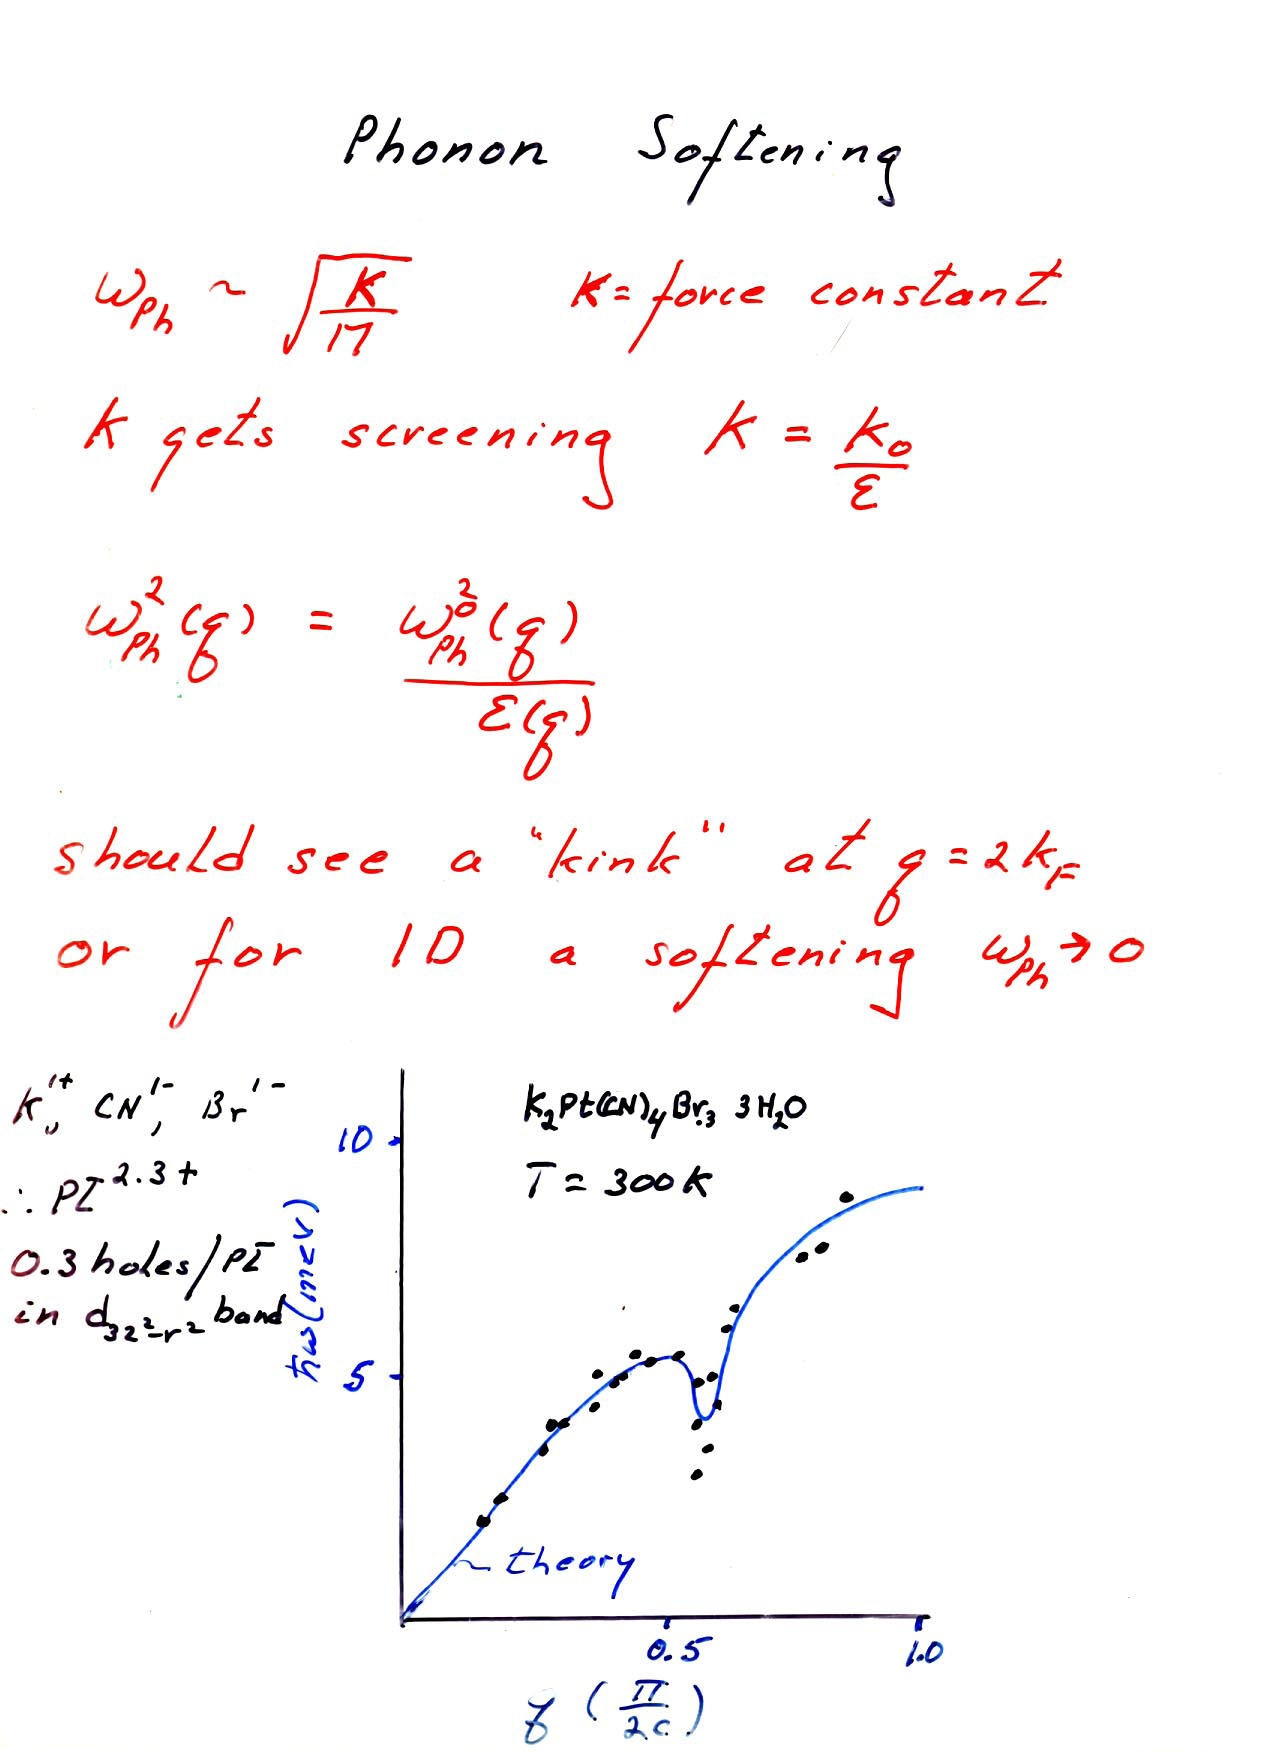 Phonon Softening
ω_ph ~ √(K/M) K = force constant
K gets screening K = K₀/ε
ω²_ph(q) = ω⁰²_ph(q)/ε(q)
should see a "kink" at q = 2k_F
or for 1D a softening ω_ph → 0
K¹⁺, CN¹⁻, Br¹⁻
∴ Pt^2.3+
0.3 holes/Pt
in d_3z²-r² band
K₂Pt(CN)₄Br.₃ 3H₂O
T = 300K
ħω(meV)
10
5
theory
0.5
1.0
q (π/2c)